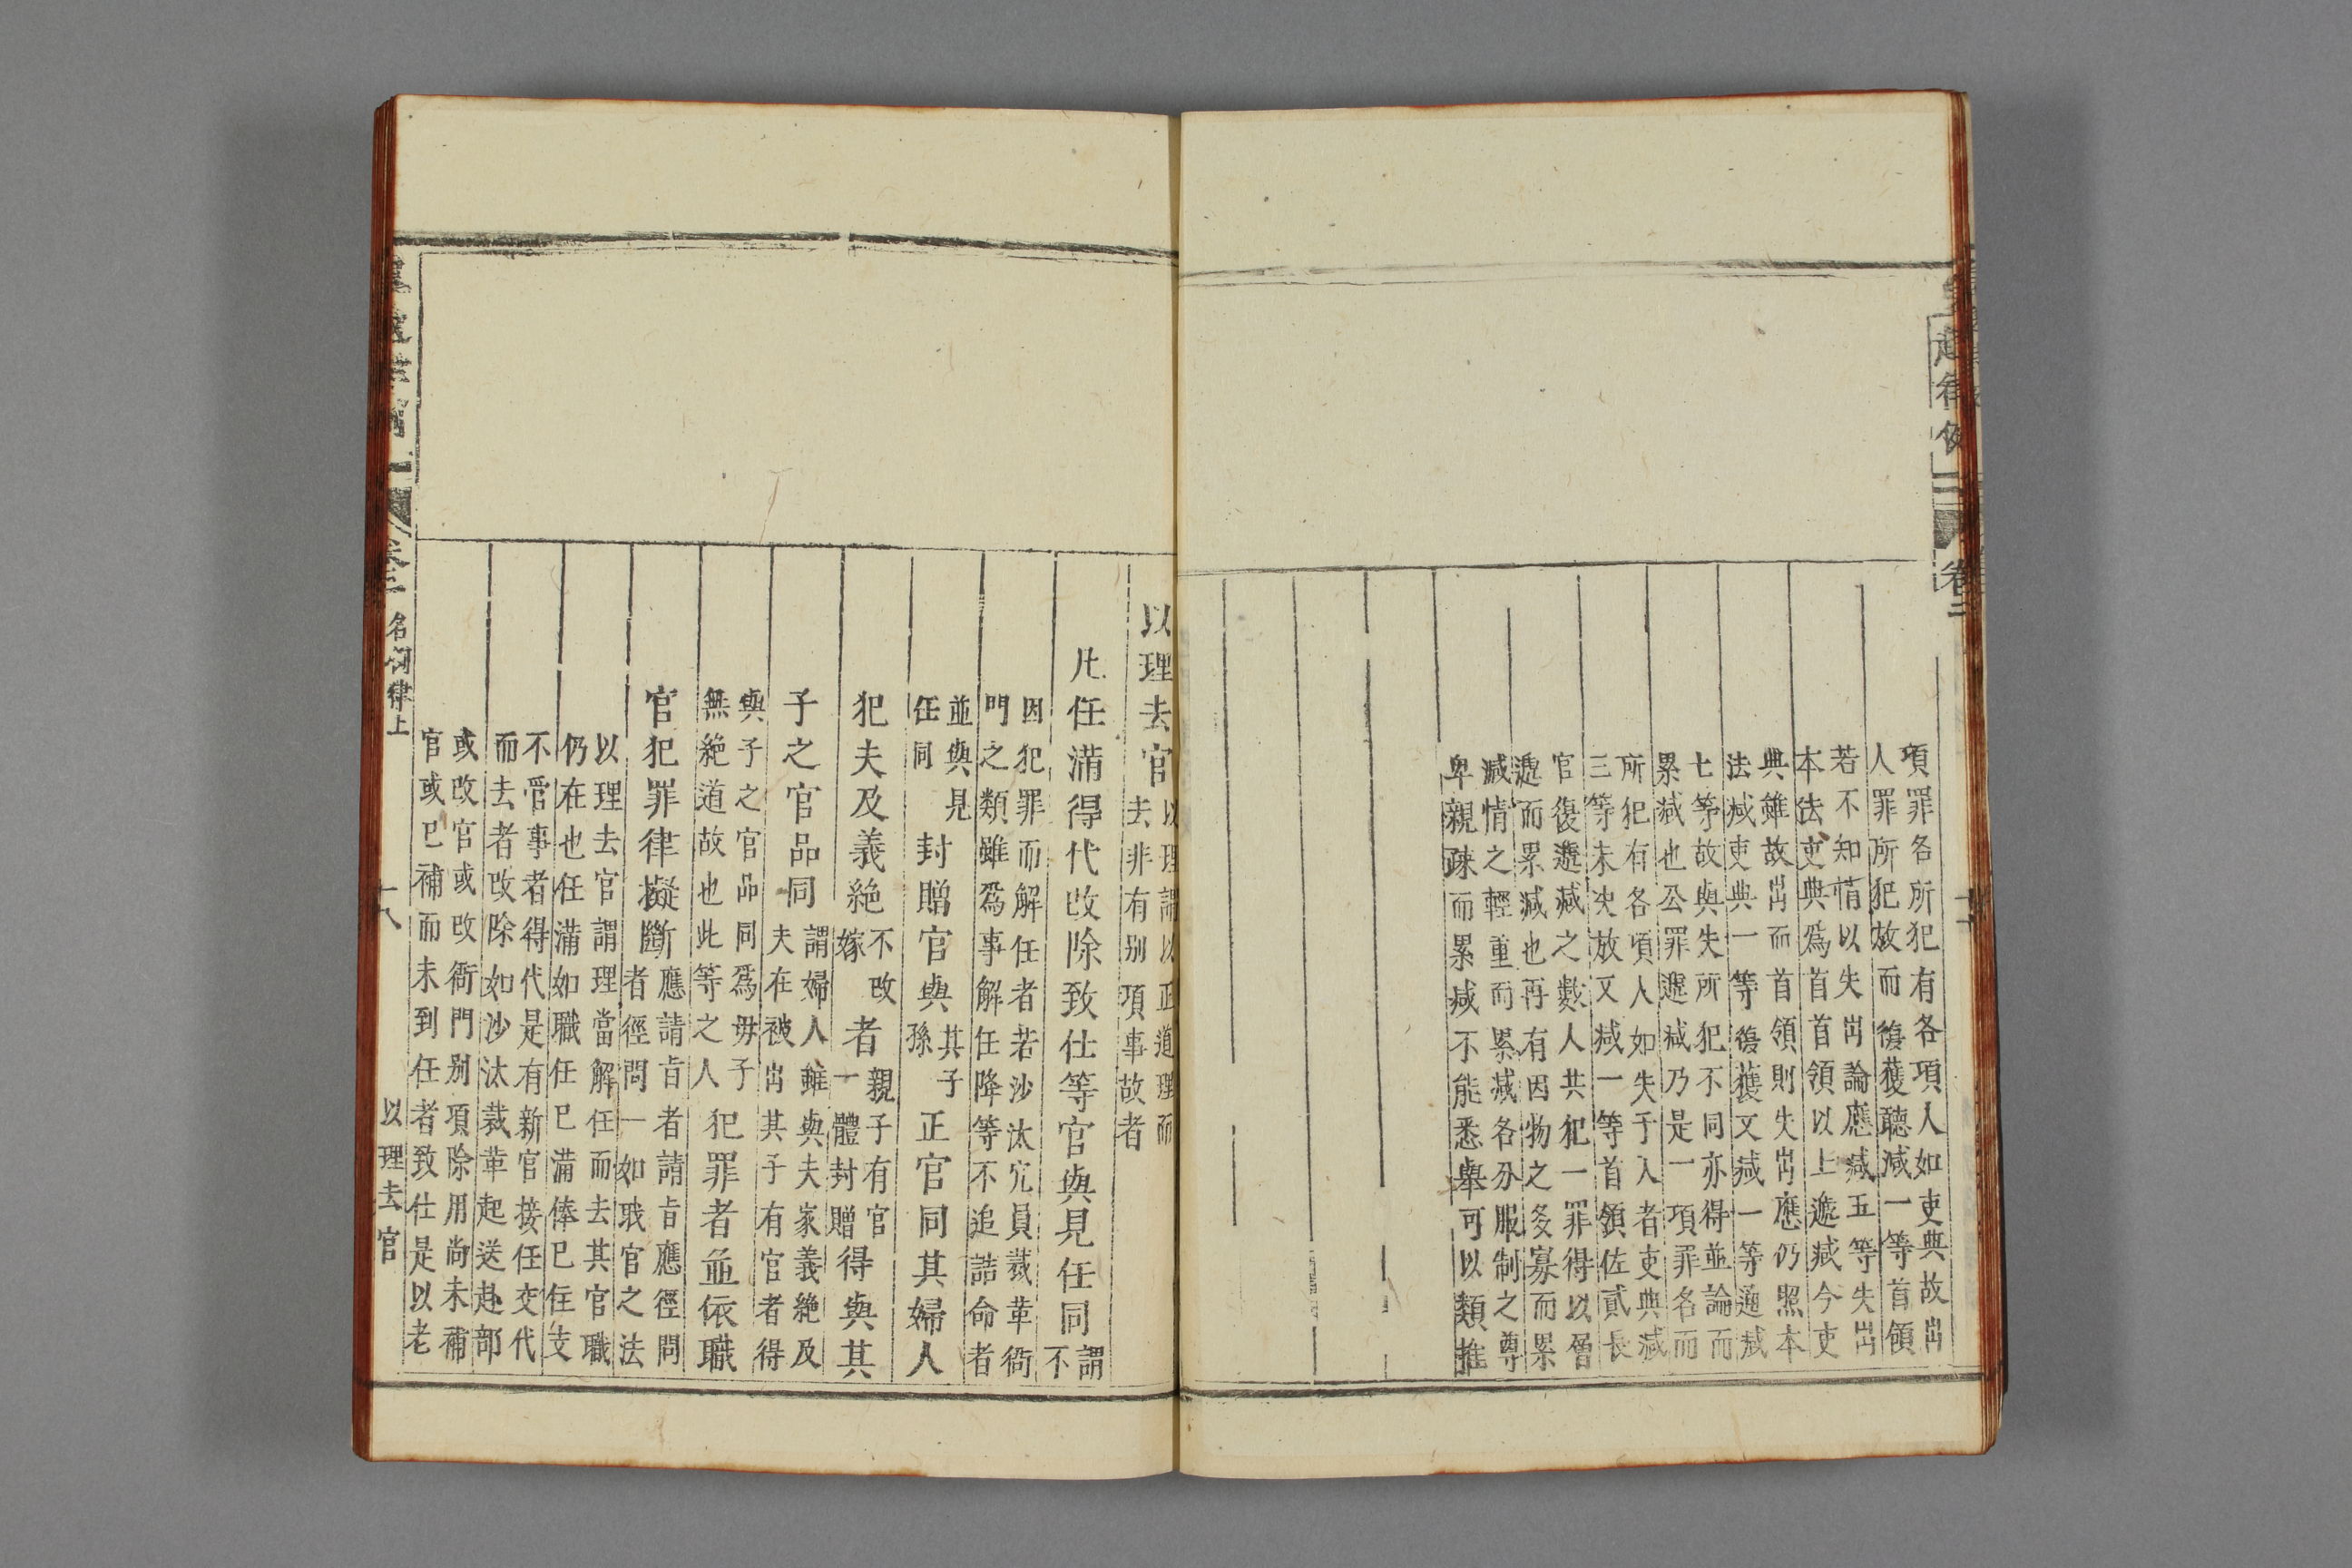 項罪各所犯有各項人如吏典故出
人罪所犯故而復獲聽減一等首領
若不知情以失出論應減五等失出
本法吏典爲首首領以上遞減今吏
典雖故出而首領則失出應仍照本
法減吏典一等復獲又減一等通減
七等故與失所犯不同亦得並論而
累減也公罪遞減乃是一項罪名而
所犯有各項人如失于入者吏典減
三等未決放又減一等首領佐貳長
官復遞減之數人共犯一罪得以層
遞而累減也再有因物之多寡而累
減情之輕重而累減各分服制之尊
卑親疎而累減不能悉舉可以類推
卷二
以理去官
以理謂以正道理而
去非有别項事故者
凡任滿得代改除致仕等官與見任同
謂不
因犯罪而解任者若沙汰冗員裁革衙
門之類雖爲事解任降等不追誥命者
並與見
任同
封贈官與
其子
孫
正官同其婦人
犯夫及義絶
不改
嫁
者
親子有官
一體封贈
得與其
子之官品同
謂婦人雖與夫家義絶及
夫在被出其子有官者得
與子之官品同爲母子
無絶道故也此等之人
犯罪者並依職
官犯罪律擬斷
應請旨者請旨應徑問
者徑問一如職官之法
以理去官謂理當解任而去其官職
仍在也任滿如職任已滿俸已住支
不管事者得代是有新官接任交代
而去者改除如沙汰裁革起送赴部
或改官或改衙門别項除用尚未補
官或已補而未到任者致仕是以老
卷二
名例律上
十八
以理去官